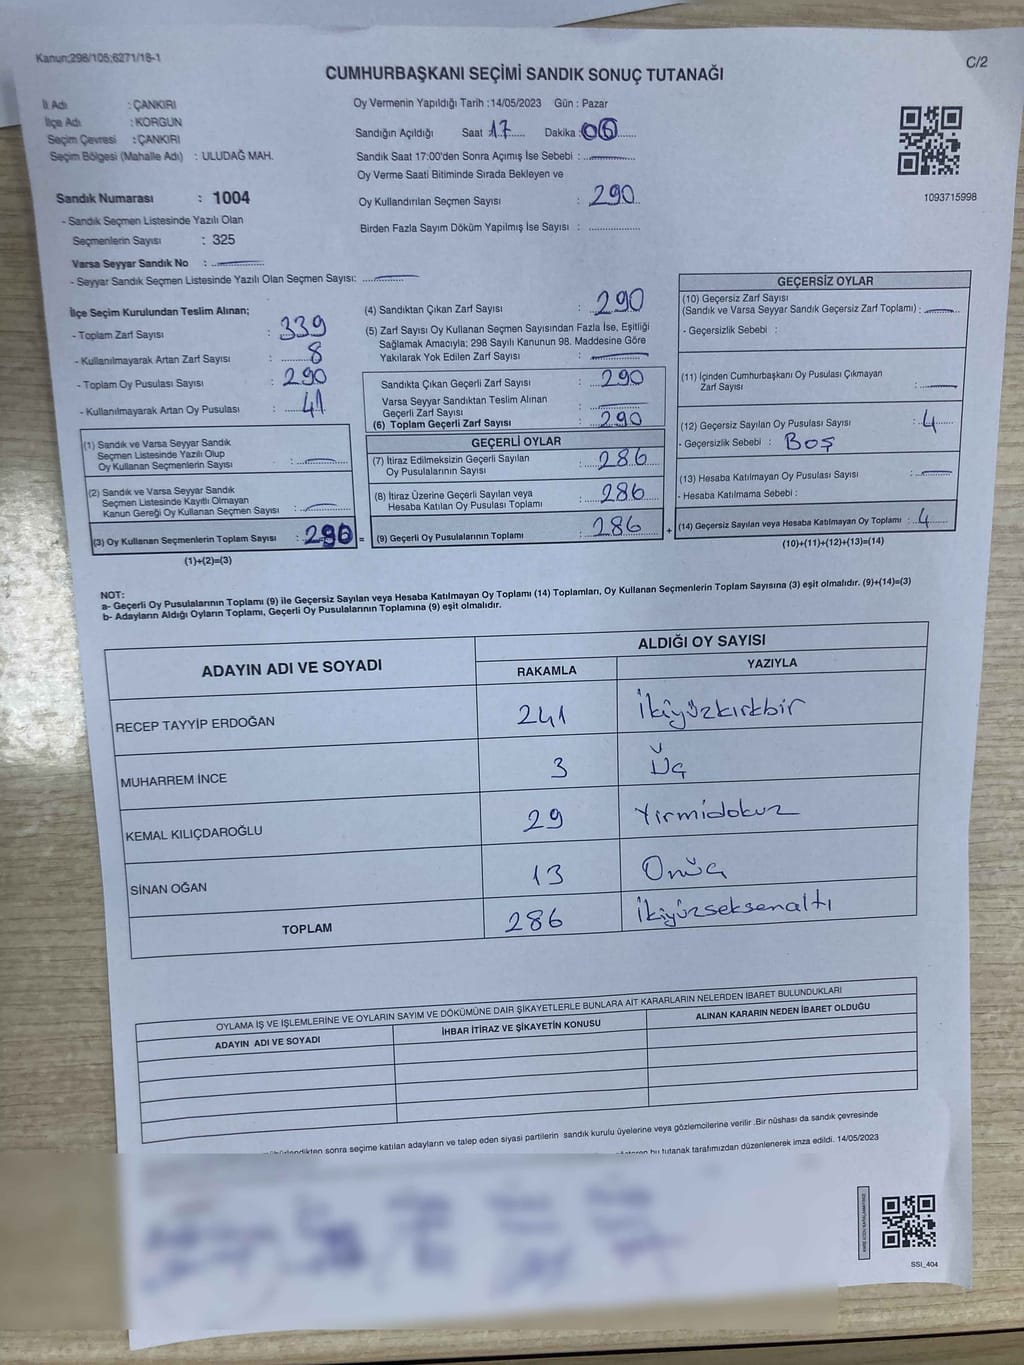 Kanun;298/105;6271/18-1
C/2
CUMHURBAŞKANI SEÇİMİ SANDIK SONUÇ TUTANAĞI
İl Adı : ÇANKIRI
İlçe Adı : KORGUN
Seçim Çevresi : ÇANKIRI
Seçim Bölgesi (Mahalle Adı) : ULUDAĞ MAH.
Sandık Numarası : 1004
- Sandık Seçmen Listesinde Yazılı Olan
Seçmenlerin Sayısı : 325
Varsa Seyyar Sandık No :
- Seyyar Sandık Seçmen Listesinde Yazılı Olan Seçmen Sayısı:
Oy Vermenin Yapıldığı Tarih :14/05/2023 Gün : Pazar
Sandığın Açıldığı Saat 17 Dakika :06
Sandık Saat 17:00'den Sonra Açımış İse Sebebi :
Oy Verme Saati Bitiminde Sırada Bekleyen ve
Oy Kullandırılan Seçmen Sayısı : 290
Birden Fazla Sayım Döküm Yapılmış İse Sayısı :
1093715998
İlçe Seçim Kurulundan Teslim Alınan;
- Toplam Zarf Sayısı : 339
- Kullanılmayarak Artan Zarf Sayısı : 8
- Toplam Oy Pusulası Sayısı : 290
- Kullanılmayarak Artan Oy Pusulası : 41
(1) Sandık ve Varsa Seyyar Sandık
Seçmen Listesinde Yazılı Olup
Oy Kullanan Seçmenlerin Sayısı :
(2) Sandık ve Varsa Seyyar Sandık
Seçmen Listesinde Kayıtlı Olmayan
Kanun Gereği Oy Kullanan Seçmen Sayısı :
(3) Oy Kullanan Seçmenlerin Toplam Sayısı : 290 =
(1)+(2)=(3)
(4) Sandıktan Çıkan Zarf Sayısı : 290
(5) Zarf Sayısı Oy Kullanan Seçmen Sayısından Fazla İse, Eşitliği
Sağlamak Amacıyla; 298 Sayılı Kanunun 98. Maddesine Göre
Yakılarak Yok Edilen Zarf Sayısı :
Sandıkta Çıkan Geçerli Zarf Sayısı : 290
Varsa Seyyar Sandıktan Teslim Alınan
Geçerli Zarf Sayısı :
(6) Toplam Geçerli Zarf Sayısı : 290
GEÇERLİ OYLAR
(7) İtiraz Edilmeksizin Geçerli Sayılan
Oy Pusulalarının Sayısı : 286
(8) İtiraz Üzerine Geçerli Sayılan veya
Hesaba Katılan Oy Pusulası Toplamı : 286
(9) Geçerli Oy Pusulalarının Toplamı : 286 +
GEÇERSİZ OYLAR
(10) Geçersiz Zarf Sayısı
(Sandık ve Varsa Seyyar Sandık Geçersiz Zarf Toplamı) :
- Geçersizlik Sebebi :
(11) İçinden Cumhurbaşkanı Oy Pusulası Çıkmayan
Zarf Sayısı :
(12) Geçersiz Sayılan Oy Pusulası Sayısı : 4
- Geçersizlik Sebebi : Boş
(13) Hesaba Katılmayan Oy Pusulası Sayısı :
- Hesaba Katılmama Sebebi :
(14) Geçersiz Sayılan veya Hesaba Katılmayan Oy Toplamı : 4
(10)+(11)+(12)+(13)=(14)
NOT:
a- Geçerli Oy Pusulalarının Toplamı (9) ile Geçersiz Sayılan veya Hesaba Katılmayan Oy Toplamı (14) Toplamları, Oy Kullanan Seçmenlerin Toplam Sayısına (3) eşit olmalıdır. (9)+(14)=(3)
b- Adayların Aldığı Oyların Toplamı, Geçerli Oy Pusulalarının Toplamına (9) eşit olmalıdır.
ADAYIN ADI VE SOYADI
ALDIĞI OY SAYISI
RAKAMLA YAZIYLA
RECEP TAYYİP ERDOĞAN 241 İkiyüzkırkbir
MUHARREM İNCE 3 Üç
KEMAL KILIÇDAROĞLU 29 Yirmidokuz
SİNAN OĞAN 13 Onüç
TOPLAM 286 İkiyüzseksenaltı
OYLAMA İŞ VE İŞLEMLERİNE VE OYLARIN SAYIM VE DÖKÜMÜNE DAİR ŞİKAYETLERLE BUNLARA AİT KARARLARIN NELERDEN İBARET BULUNDUKLARI
ADAYIN ADI VE SOYADI İHBAR İTİRAZ VE ŞİKAYETİN KONUSU ALINAN KARARIN NEDEN İBARET OLDUĞU
sonra seçime katılan adayların ve talep eden siyasi partilerin sandık kurulu üyelerine veya gözlemcilerine verilir .Bir nüshası da sandık çevresinde
bu tutanak tarafımızdan düzenlenerek imza edildi. 14/05/2023
SSI_404